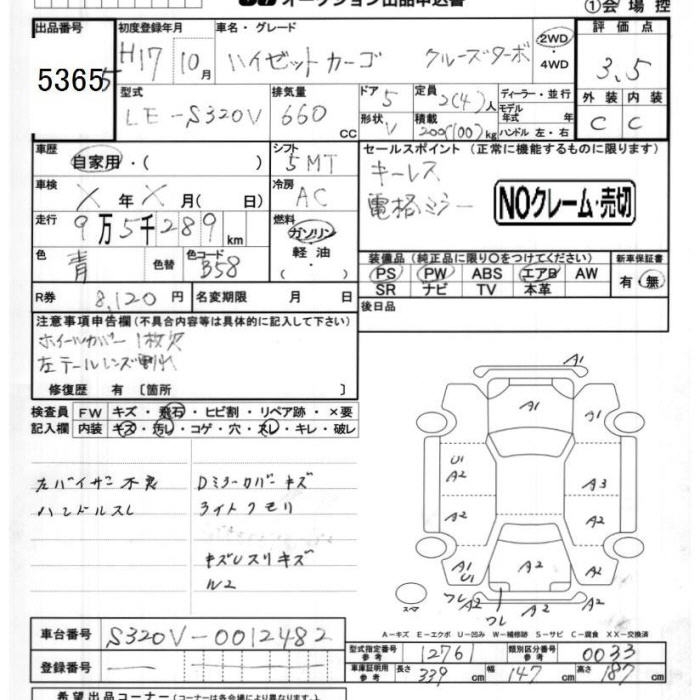 オークション出品申込書
①会場控
出品番号 5365 5
初度登録年月 H17 10月
車名・グレード ハイゼットカーゴ クルーズターボ
2WD・4WD
評価点 3.5
外装 C 内装 C
型式 LE-S320V
排気量 660 CC
ドア 5 形状 V
定員 2(4)人
積載 200(100)kg
ディーラー・並行
モデル年式 年式
ハンドル 左・右
車歴 自家用・( )
シフト 5MT
車検 X年X月( 日)
冷房 AC
走行 9万5千289km
燃料 ガソリン・軽油・( )
色 青 色替 色コード 358
R券 8,120円 名変期限 月 日
セールスポイント (正常に機能するものに限ります)
キーレス
電格ミラー
NOクレーム・売切
装備品(純正品に限り〇をつけてください)
PS PW ABS エアB AW
SR ナビ TV 本革
新車保証書 有・無
後日品
注意事項申告欄(不具合内容等は具体的に記入して下さい)
ホイールカバー1枚欠
左テールレンズ割れ
修復歴 有 〔箇所 〕
検査員記入欄
FW キズ・飛石・ヒビ割・リペア跡・×要
内装 キズ・汚し・コゲ・穴・スレ・キレ・破レ
左バイザー不良
ハンドルスレ
Dミラーカバーキズ
ライトクモリ
キズUスリキズ
ル2
A1
A1
U1
A2
A3
A2
A2
A1
U1
A2
A2
A1
フレ
A2
フレ
スマ
A-キズ E-エクボ U-凹み W-補修跡 S-サビ C-腐食 XX-交換済
車台番号 S320V-0012482
登録番号 —
型式指定番号 参考 12761
類別区分番号 参考 0033
車庫証明用 参考 長さ 339cm 幅 147cm 高さ 187cm
希望出品コーナー(コーナーは各会場により異なります